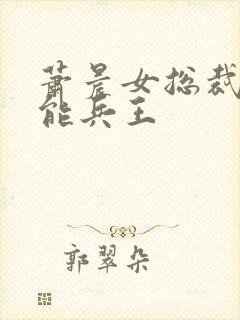 萧晨女总裁
能兵王
郭翠朵